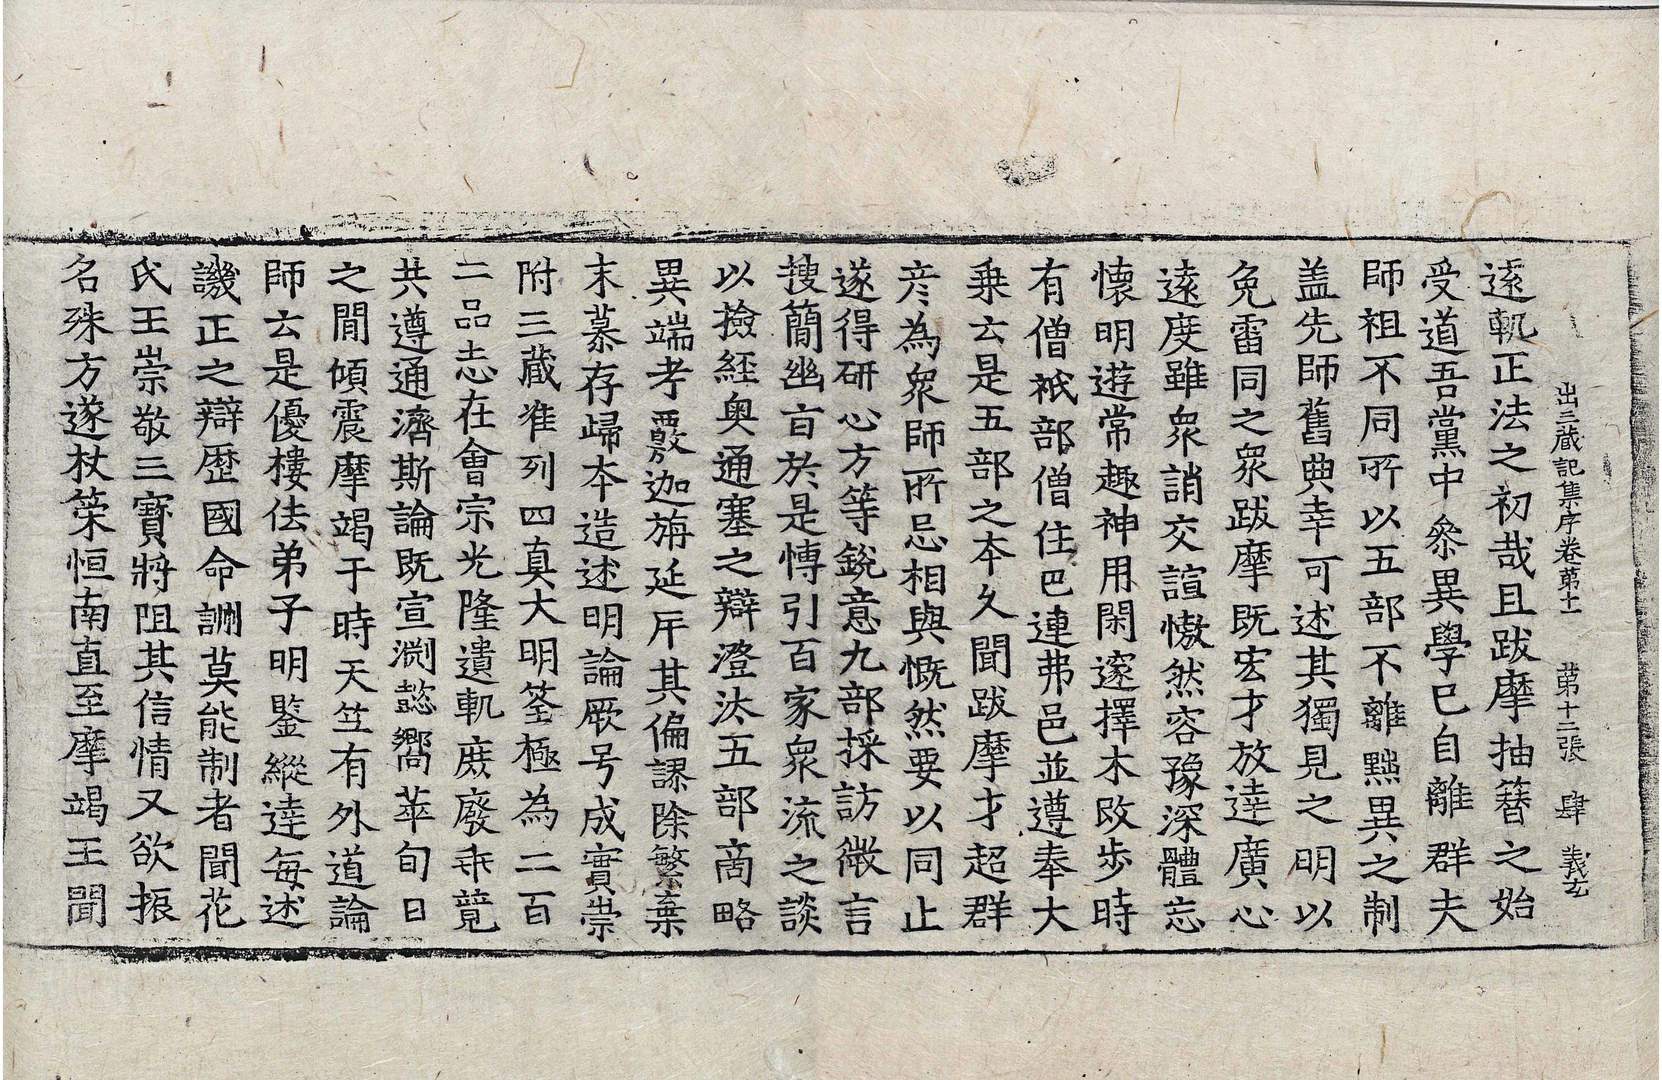 出三藏記集序卷苐十一 苐十二張 肆 義玄
遠軌正法之初哉且跋摩抽簪之始
受道吾黨中叅異學已自離群夫
師祖不同所以五部不離黜異之制
盖先師舊典幸可述其獨見之明以
免雷同之衆跋摩既宏才放達廣心
遠度雖衆誚交諠慠然容豫深體忘
懷明遊常趣神用閑邃擇木改步時
有僧祇部僧住巴連弗邑並遵奉大
乗云是五部之本久聞跋摩才超群
彦為衆師所忌相與慨然要以同止
遂得研心方等銳意九部採訪微言
搜簡幽旨於是博引百家衆流之談
以撿經奥通塞之辯澄汰五部商略
異端考覈迦旃延斥其偏謬除繁棄
末慕存歸本造述明論厥号成實崇
附三藏准列四真大明筌極為二百
二品志在會宗光隆遺軌庶廢乖競
共遵通濟斯論既宣渕懿嚮萃旬日
之閒傾震摩竭于時天竺有外道論
師云是優樓佉弟子明鑒縱達每述
譏正之辯歷國命詶莫能制者聞花
氏王崇敬三寶將阻其信情又欲振
名殊方遂杖策恒南直至摩竭王聞